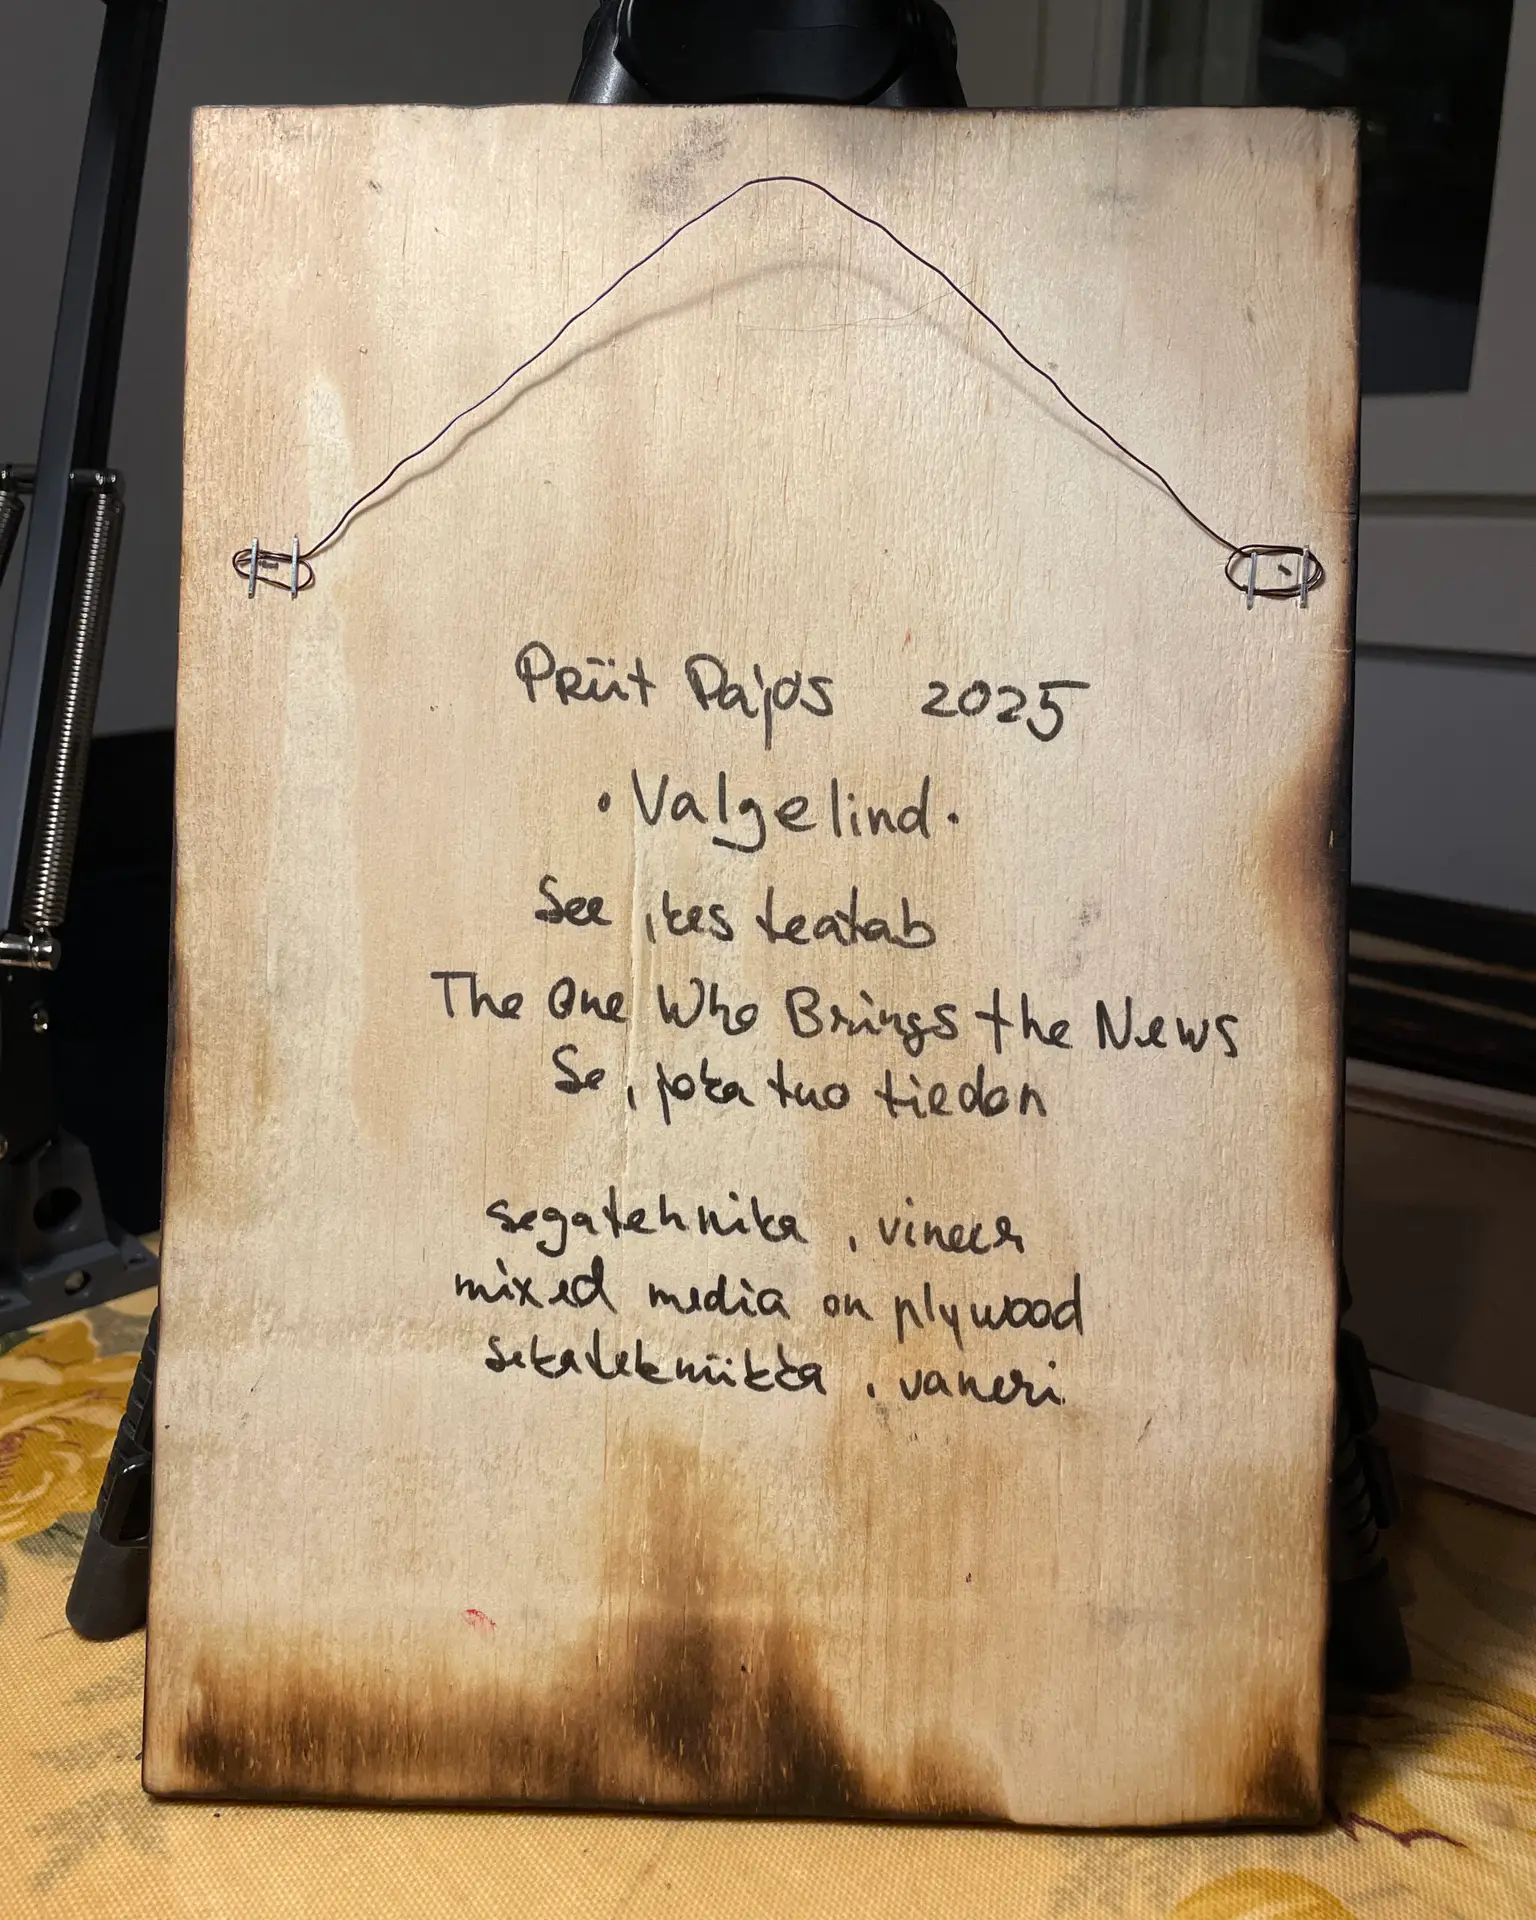 Priit Pajos 2025
·Valgelind·
See, kes teatab
The One Who Brings the News
Se, joka tuo tiedon
segatehnika, vineer
mixed media on plywood
sekatekniikka, vaneri